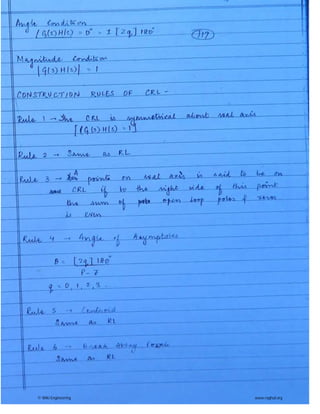 Angle Condition
∠G(s)H(s) = 0° = ± [2q] 180°
Magnitude Condition
|G(s)H(s)| = 1
CONSTRUCTION RULES OF CRL -
Rule 1 → The CRL is symmetrical about real axis
[∠G(s)H(s) = 1]
Rule 2 → Same as RL
Rule 3 → A points on real axis is said to be on
CRL if to the right side of this point
the sum of open loop poles & zeros
is even
Rule 4 → Angle of Asymptotes
θ = [2q] 180°
P - Z
q = 0, 1, 2, 3
Rule 5 → Centroid
Same as RL
Rule 6 → Break Away Points
Same as RL
www.raghul.org